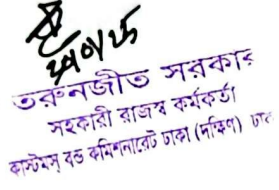 তরুনজীত সরকার
সহকারী রাজস্ব কর্মকর্তা
কাস্টমস্ বন্ড কমিশনারেট ঢাকা (দক্ষিণ)